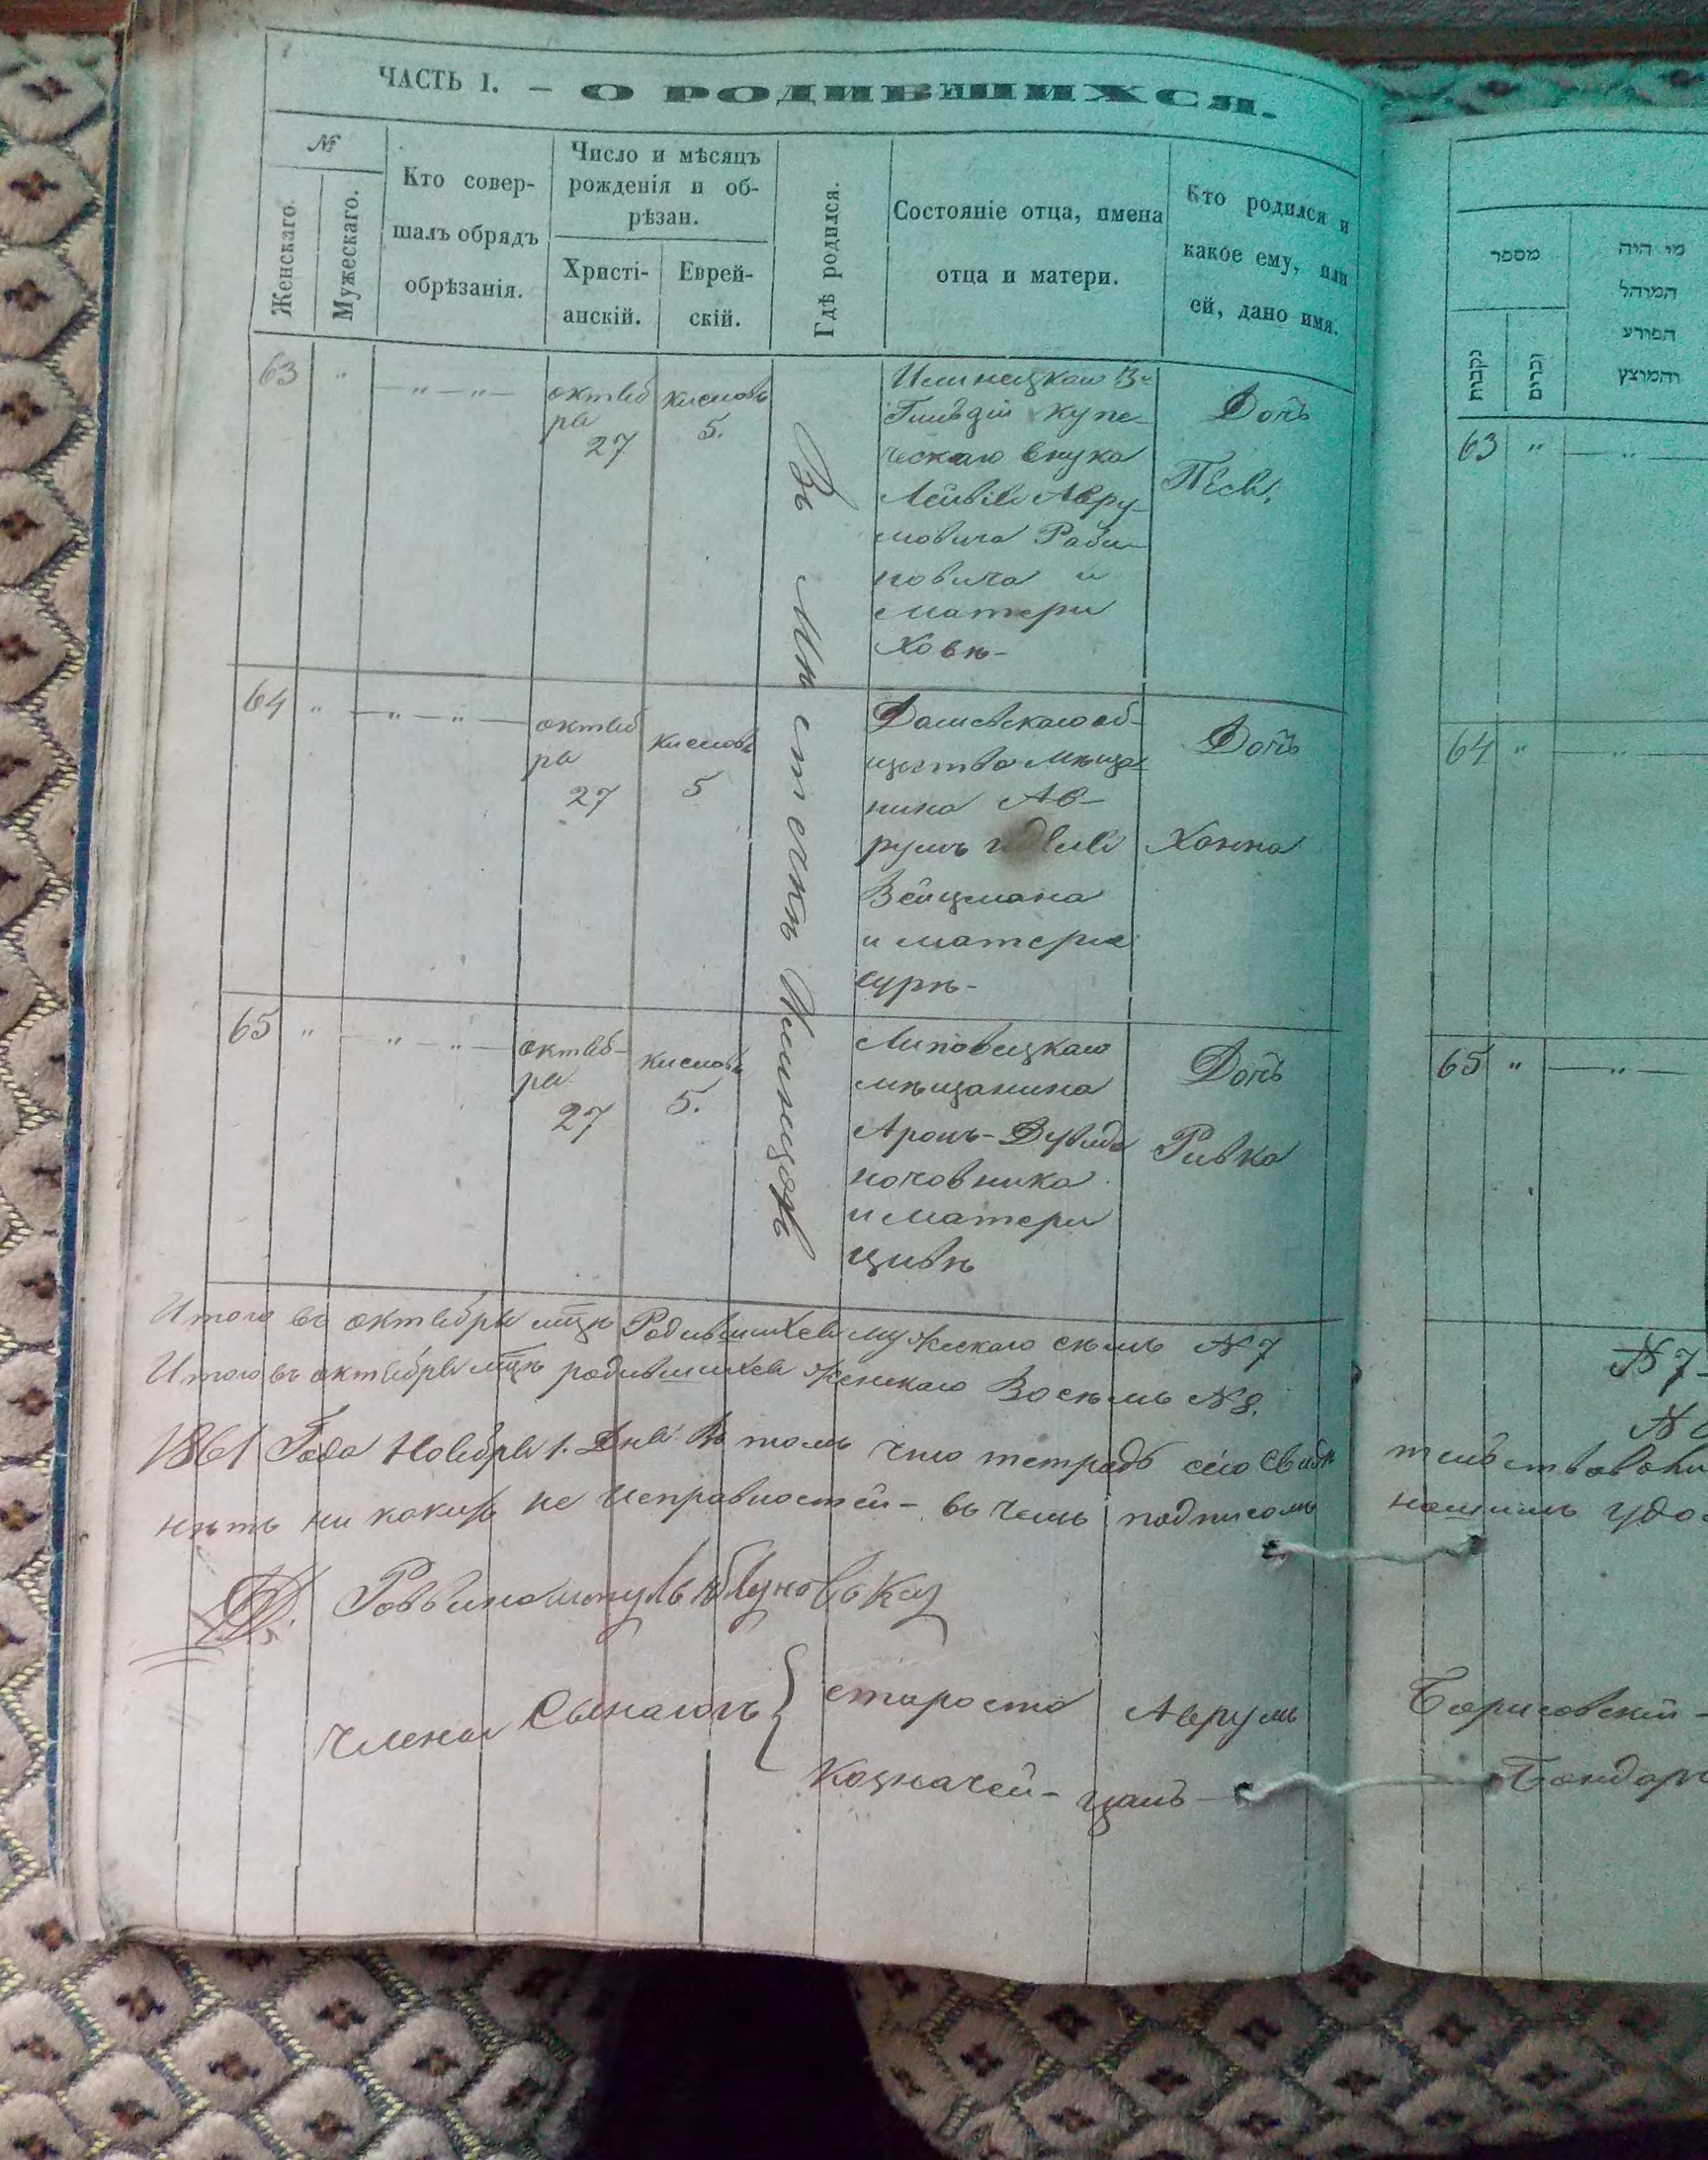 ЧАСТЬ I. — О РОДИВШИХСЯ.
№
Женскаго.
Мужескаго.
Кто совер-
шалъ обрядъ
обрѣзанія.
Число и мѣсяцъ
рожденія и об-
рѣзан.
Христі-
анскій.
Еврей-
скій.
Гдѣ родился.
Состояніе отца, имена
отца и матери.
Кто родился и
какое ему, или
ей, дано имя.
Въ Мѣстечкѣ Илинцахъ
63 " — " — " —
октяб
ря
27
кислова
5.
Илинецкаго 3й
Гильдіи купе-
ческаго внука
Лейви Авру-
мовича Раби-
новича и
матери
Ховѣ-
Дочь
Песя.
64 " — " — " —
октяб
ря
27
кислова
5
Дашевскаго об-
щества мѣща
нина Ав-
румъ
Вейцмана
и матери
сурѣ-
Дочь
Ханна
65 " — " — " —
октяб-
ря
27
кислова
5.
Липовецкаго
мѣщанина
Аронъ-Дувида
кочовника
и матери
цивѣ
Дочь
Ривка
Итого въ октябрѣ мцѣ Родившихся мужескаго семь №7
Итого въ октябрѣ мцѣ родившихся женскаго Восемь №8.
1861 Года Ноября 1. Дня въ томъ что тетрадь сію свидѣ
нѣтъ ни какихъ не исправностей- въ чемъ подписомъ
Раввинъ
члены Сынагогъ { староста Аврумъ
казначей-
מספר
נקבות
זכרים
מי היה
המוהל
הפורע
והמוצץ
63 " — " —
64 " — " —
65 " — " —
№7-
тельствовали
нашимъ удо
Борисовскій-
Бондарь